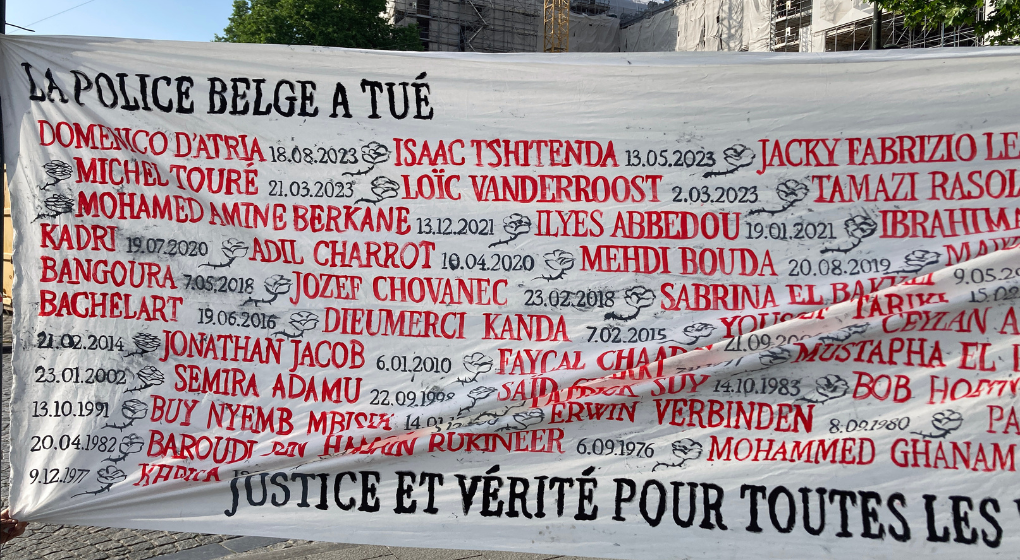 LA POLICE BELGE A TUÉ
DOMENICO D'ATRIA 18.08.2023 ISAAC TSHITENDA 13.05.2023 JACKY FABRIZIO
MICHEL TOURÉ 21.03.2023 LOÏC VANDERROOST 2.03.2023 TAMAZI
MOHAMED AMINE BERKANE 13.12.2021 ILYES ABBEDOU 19.01.2021 IBRAHIMA
KADRI 19.07.2020 ADIL CHARROT 10.04.2020 MEHDI BOUDA 20.08.2019
BANGOURA 7.05.2018 JOZEF CHOVANEC 23.02.2018 SABRINA EL
BACHELART 19.06.2016 DIEUMERCI KANDA 7.02.2015 CEYLAN
21.02.2014 JONATHAN JACOB 6.01.2010 FAYCAL MUSTAPHA EL
23.01.2002 SEMIRA ADAMU 22.09.1998 SAID SUY 14.10.1983 BOB
13.10.1991 BUY NYEMB ERWIN VERBINDEN
20.04.1982 BAROUDI RUKINEER 6.09.1976 MOHAMMED GHANAM
9.12.1977
JUSTICE ET VÉRITÉ POUR TOUTES LES